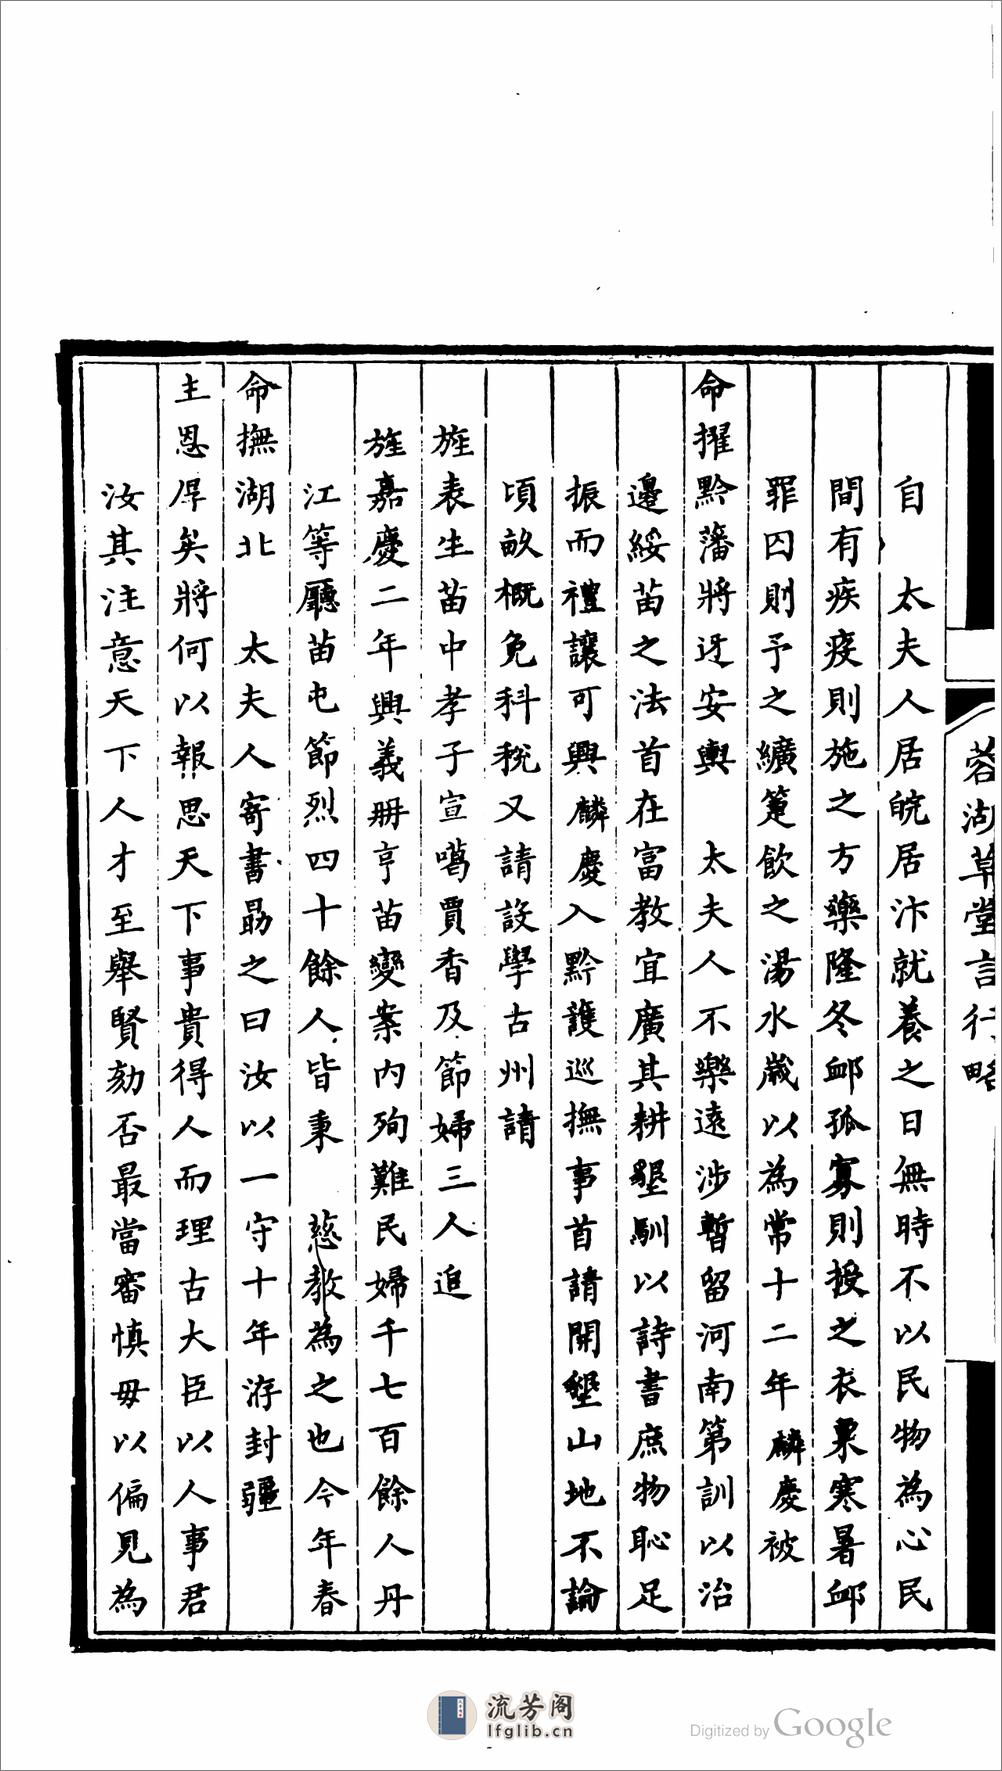 蓉湖草堂言行略
自　太夫人居皖居汴就養之日無時不以民物為心民
間有疾疫則施之方藥隆冬卹孤寡則授之衣粟寒暑卹
罪囚則予之纊箑飲之湯水歲以為常十二年麟慶被
命擢黔藩將迓安輿　太夫人不樂遠涉暫留河南第訓以治
邊綏苗之法首在富教宜廣其耕墾馴以詩書庶物恥足
振而禮讓可興麟慶入黔護巡撫事首請開墾山地不論
頃畝概免科稅又請設學古州請
旌表生苗中孝子宣噶賈香及節婦三人追
旌嘉慶二年興義冊亨苗變案內殉難民婦千七百餘人丹
江等廳苗屯節烈四十餘人皆秉　慈教為之也今年春
命撫湖北　太夫人寄書勗之曰汝以一守十年洊封疆
主恩厚矣將何以報思天下事貴得人而理古大臣以人事君
汝其注意天下人才至舉賢劾否最當審慎毋以偏見為
流芳阁
lfglib.cn
Digitized by Google